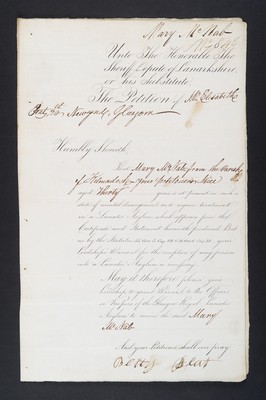 Mary McNab
Unto The Honorable The
Sheriff Depute of Lanarkshire,
or his Substitute.
The Petition of Mrs Elisabeth
Newgate, Glasgow
Humbly Sheweth,
That Mary McNab from the Parish
of Petitioners Niece
aged Thirty years is at present in such a
state of mental derangement as to require treatment
in a Lunatic Asylum which appears from the
Certificate and Statement herewith produced. But
as by the Statute
Lordships Warrant for the reception of any person
into a Lunatic Asylum is necessary.
May it therefore please your
Lordship to grant Warrant to the Officers
or Keepers of the Glasgow Royal Lunatic
Asylum to receive the said Mary
McNab
And your Petitioner shall ever pray.